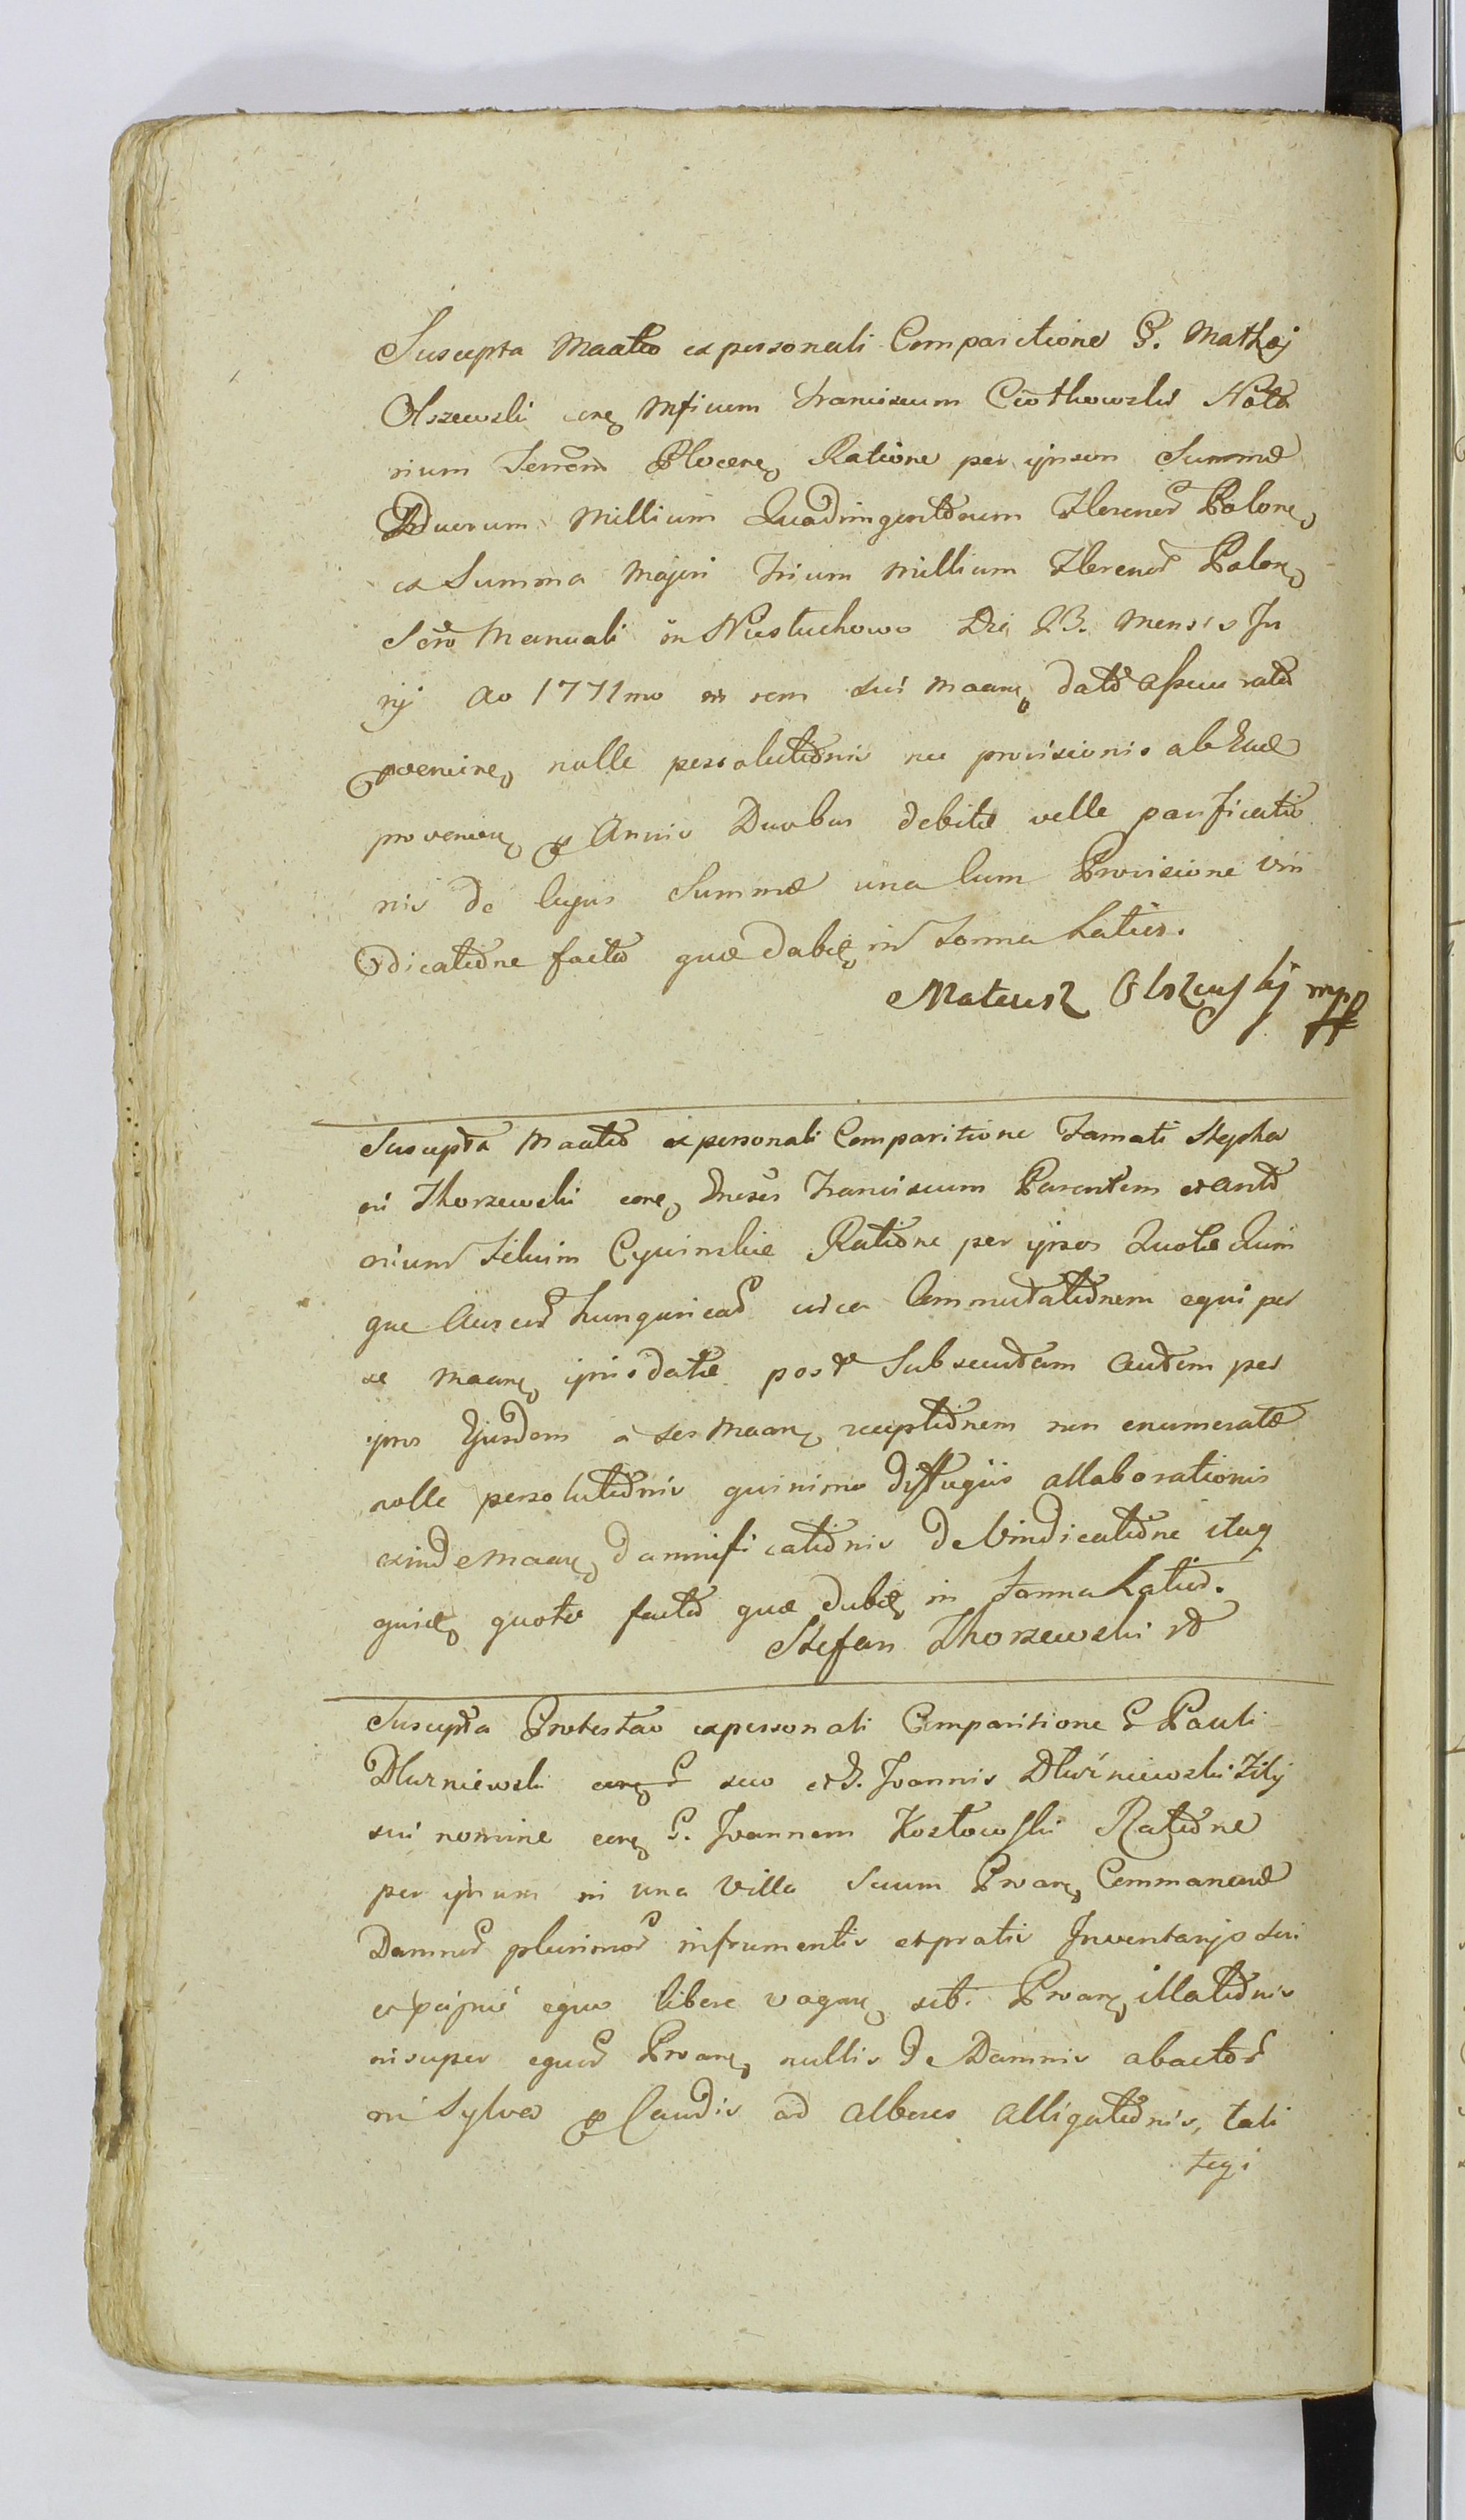 Suscepta Maatio ex personali Comparitione G. Mathæj
Olszewski cone Mficum Franciscum Ciothowski Nota
rium Terrem Plocene Ratione per ipsum Summæ
Duorum Millium Quadringentorum Florenor Polone
ex Summa Majori Trium Millium Florenor Polone
Scro Manuali in Niestuchowo Die 23. Mensis Ju
nij Ao 1771mo in rem sui Maane dato
provenire nolle persolutionis nec provisionis ab Eade
provenien p Annis Duobus debitæ velle pacificatio
nis de cujus Summæ una cum Provisione vin
dicatione facta quæ dabit in Forma Latior.
Mateusz Olszewskj mp

Suscepta Maatio ex personali Comparitione Famati Stepha
ni Zhorzewski cone Franciscum Parentem et Anto
nium Filium Cywinskie Ratione per ipsos Quotæ Quin
que Aureor Hungaricor circa Commutationem equi per
se Maane ipsis datæ post Subsecutam autem per
ipsos Ejusdem a se Maane receptionem non enumeratæ
nolle persolutionis quinimo diffugiis allaborationis
exinde Maane damnificationis de Vindicatione itaq
quotæ facta quæ dabit in Forma Latior.
Stefan Zhorzewski

Suscepta Protestao ex personali Comparitione G Pauli
Dłuzniewski suo et G. Joannis Dłuzniewski Filij
sui nomine cone G. Joannem Kostowski Ratione
per ipsum in una Villa Secum Proane Commanente
Damnor plurimor in frumentis et pratis Inventarijo sui
equo libere vagane Proane illationis
insuper equor Proane nullis de Damnis abactor
in Sylva p Caudis ad Alberes alligationis, tali
tegi